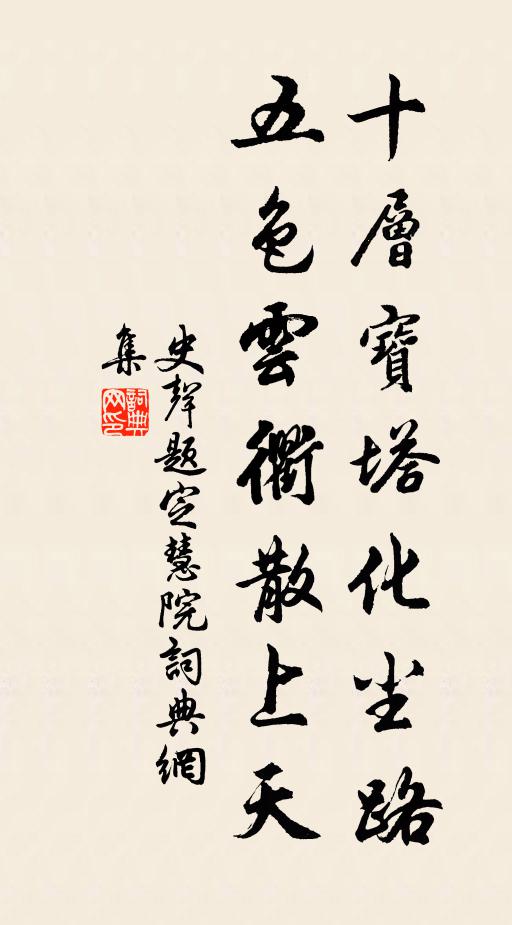 十層寶塔化尘路
五色雲衢散上天
史聲题定慧院詞典網
集
詞典网印